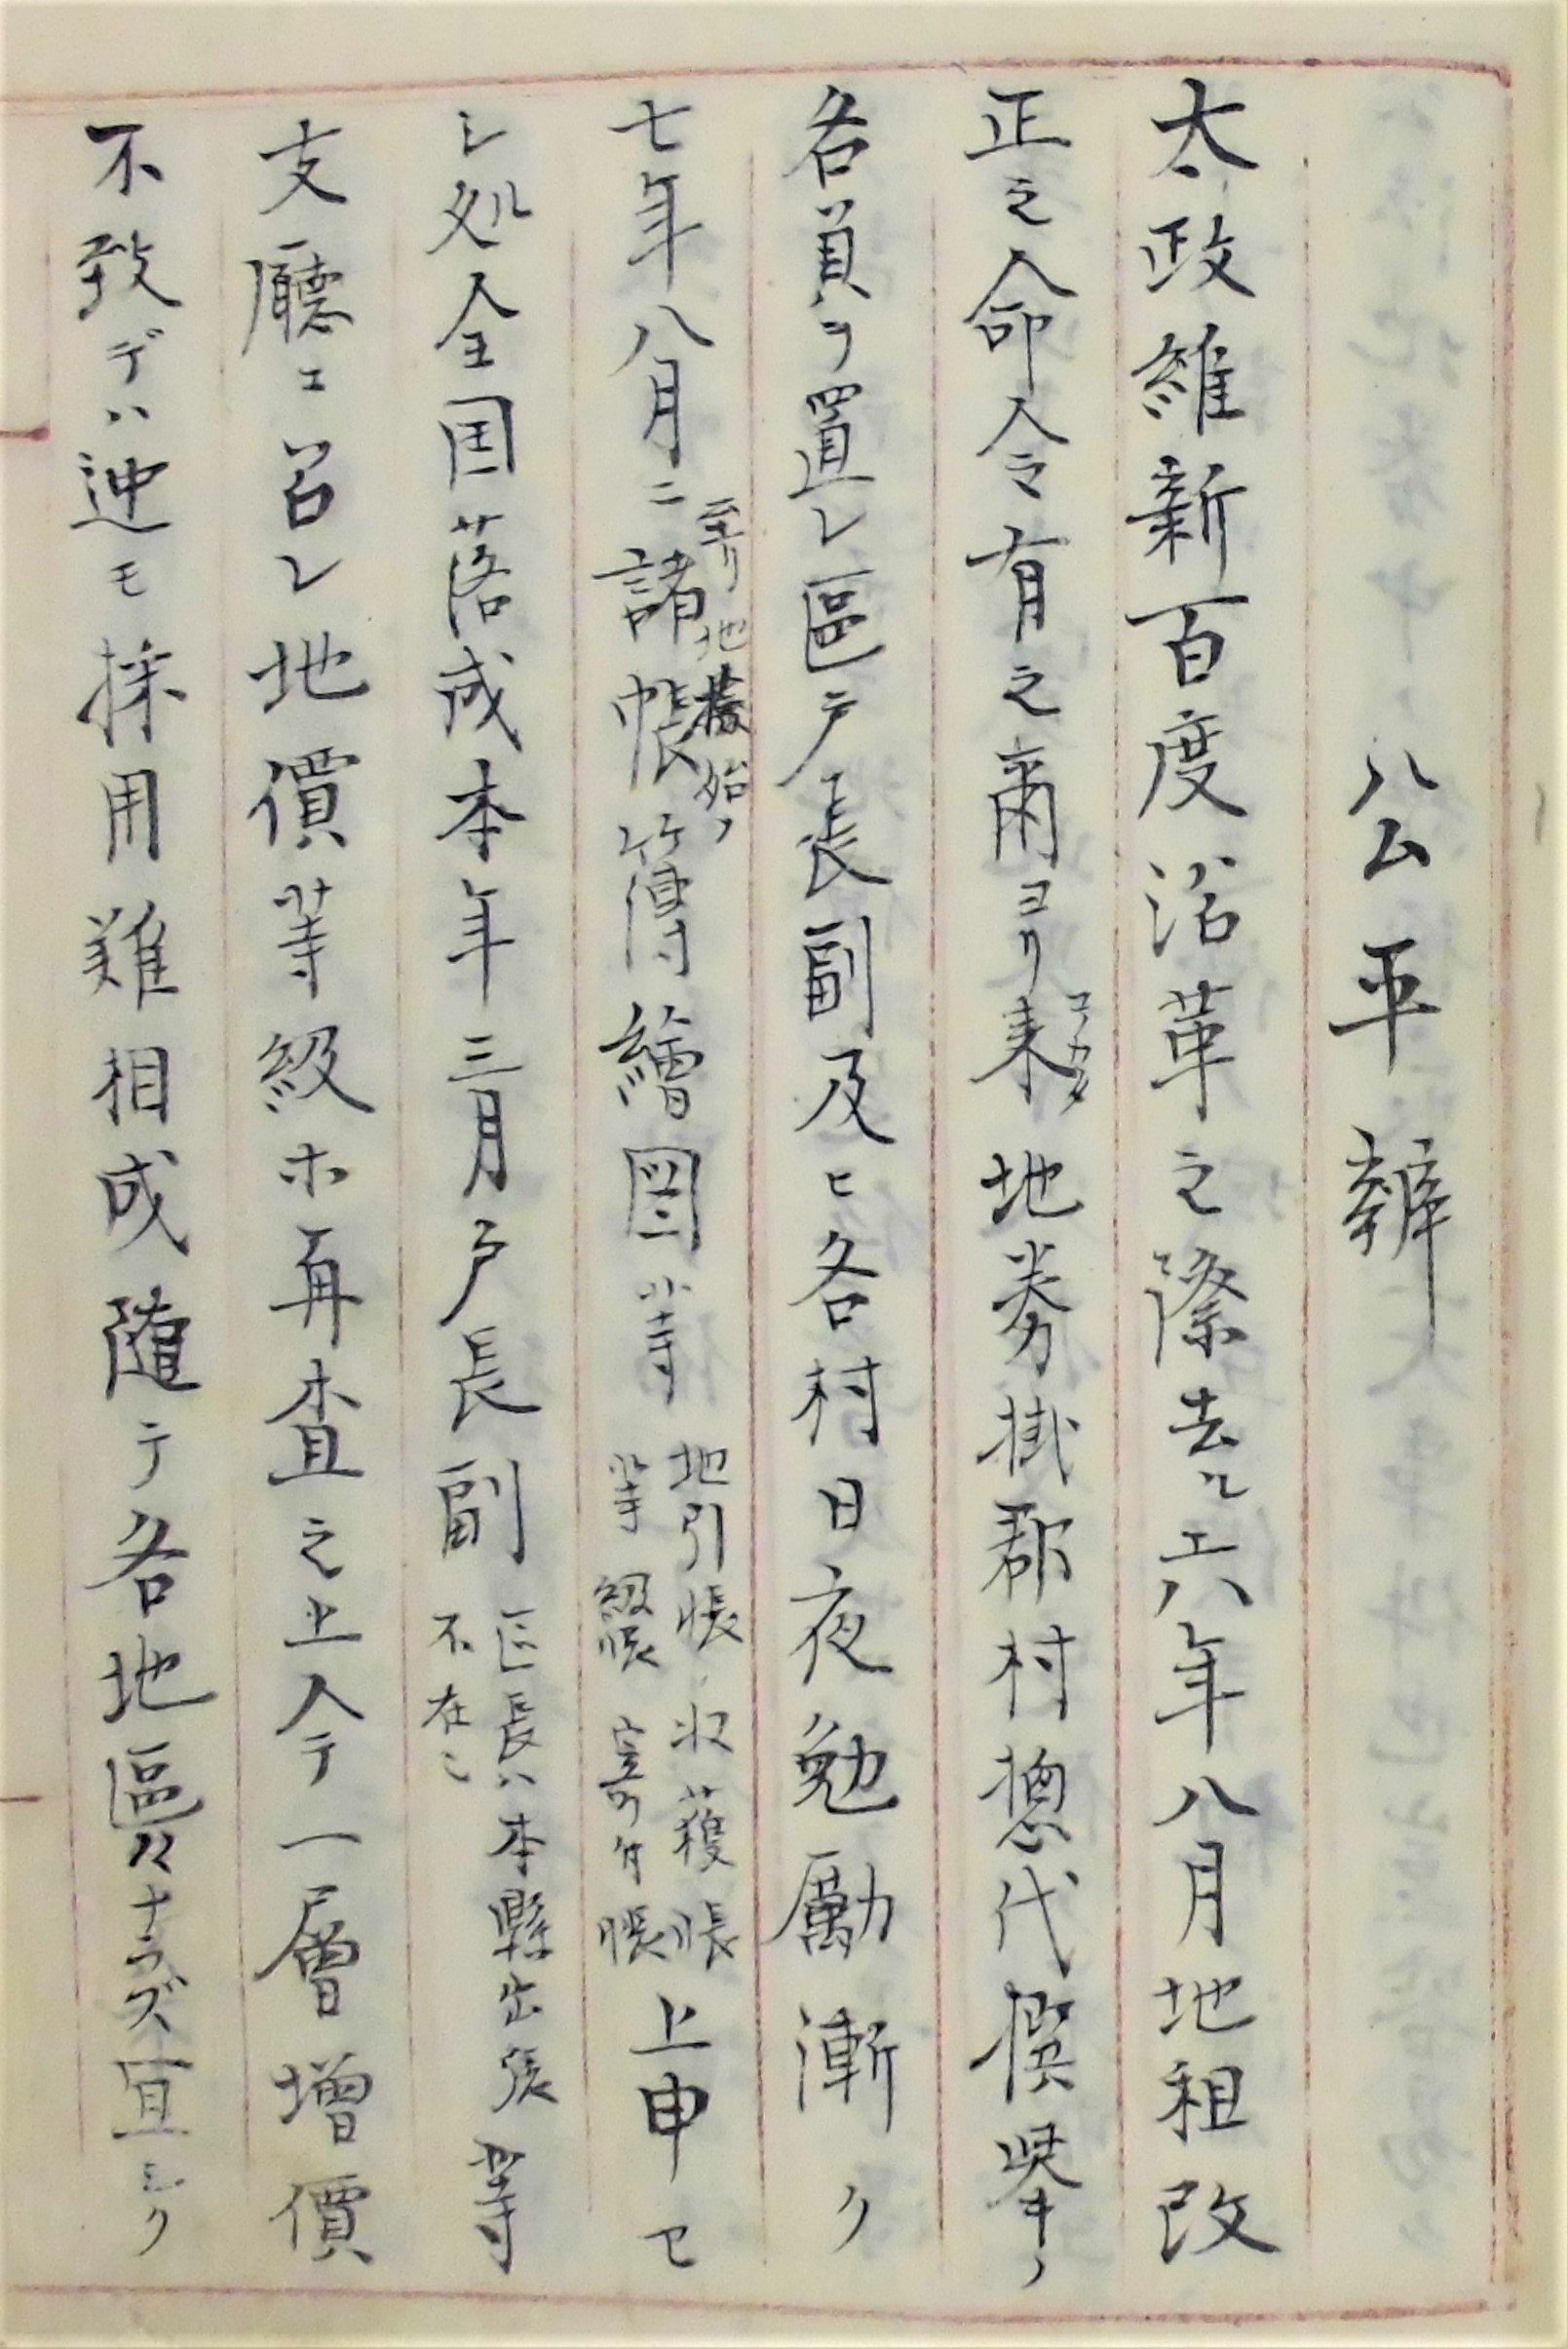 公平辨
太政維新百度沿革之際去ル六年八月地租改
正之命令有之爾ヨリ来コノカタ地券掛郡村摠代撰挙ノ
各員ヲ置レ區戸長副及ヒ各村日夜勉勵漸ク
七年八月ニ至リ地検始ノ諸帳簿繪圖等地引帳収獲帳等級帳寄附帳上申セ
シ処全国落成本年三月戸長副区長ハ本縣出張不在ニ等
支廳エ召レ地價等級ホ再査之上今一層増價
不致デハ迚モ採用難相成随テ各地區々ナラズ宜シク